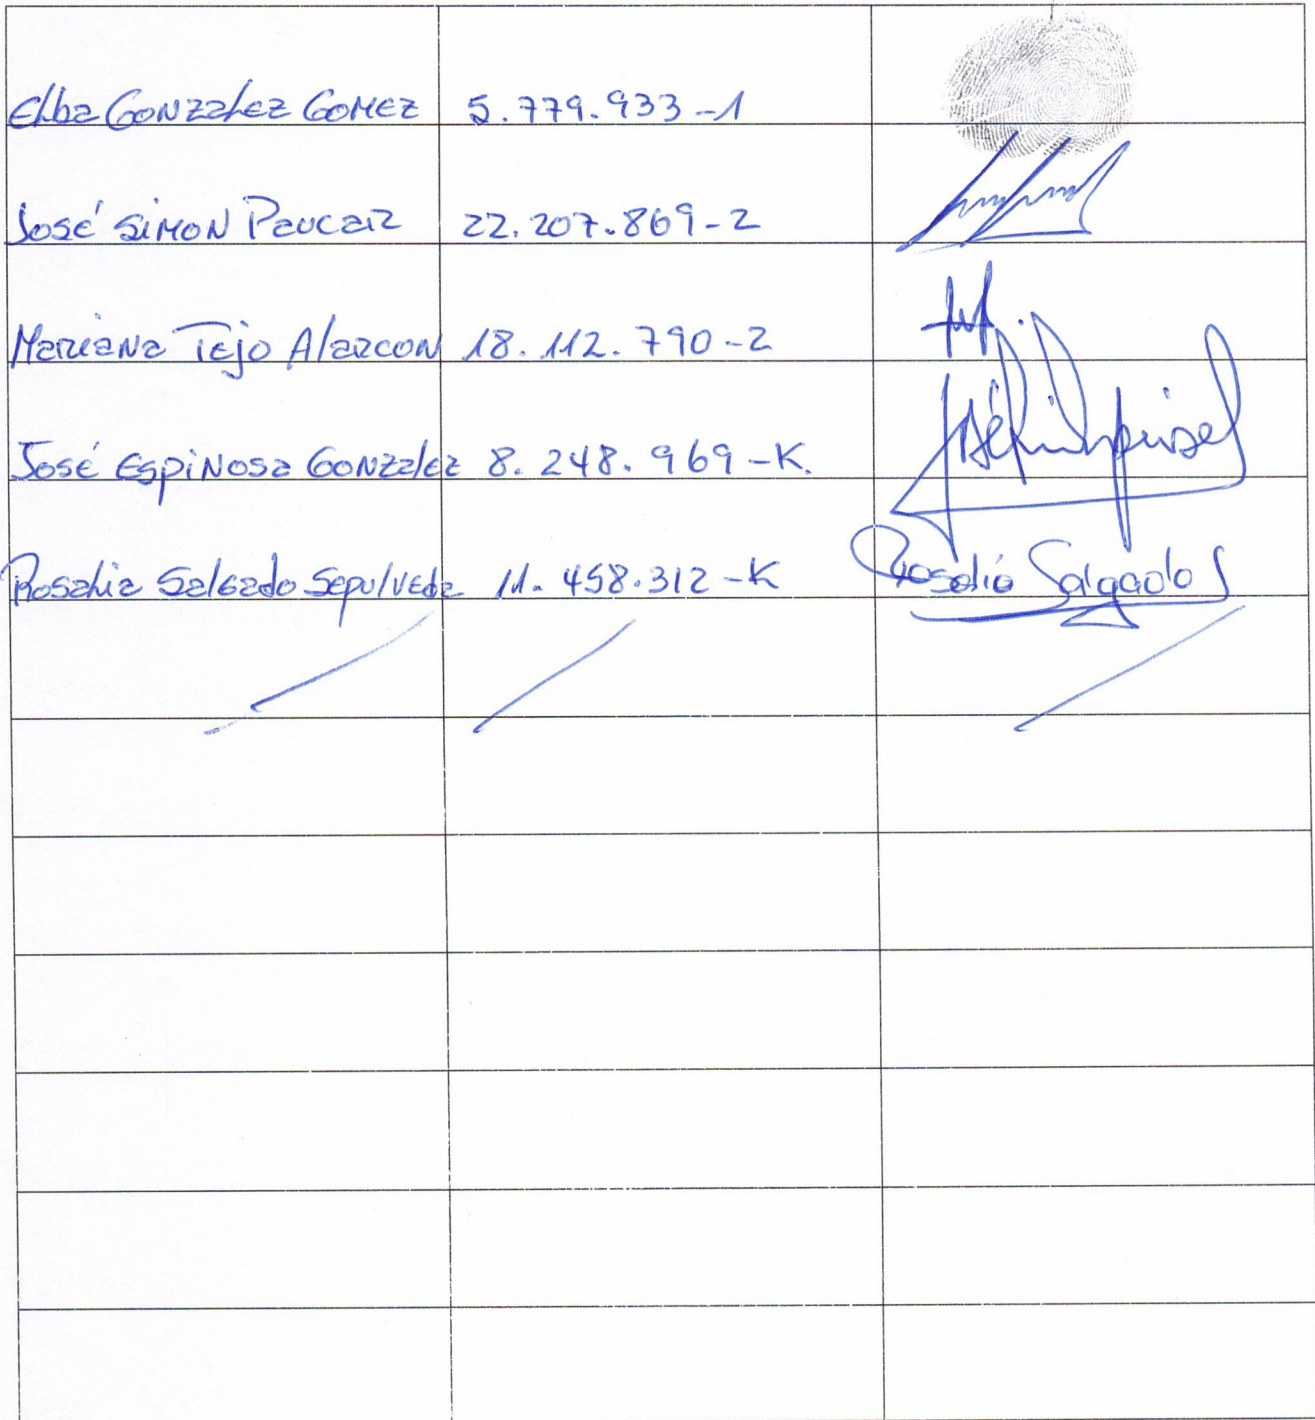 Elba Gonzalez Gomez 5.779.933-1
José Simon Paucar 22.207.869-2
Mariana Tejo Alarcon 18.112.790-2
José Espinosa Gonzalez 8.248.969-K.
Rosalia Salgado Sepulveda 11.458.312-K Rosalia Salgado S